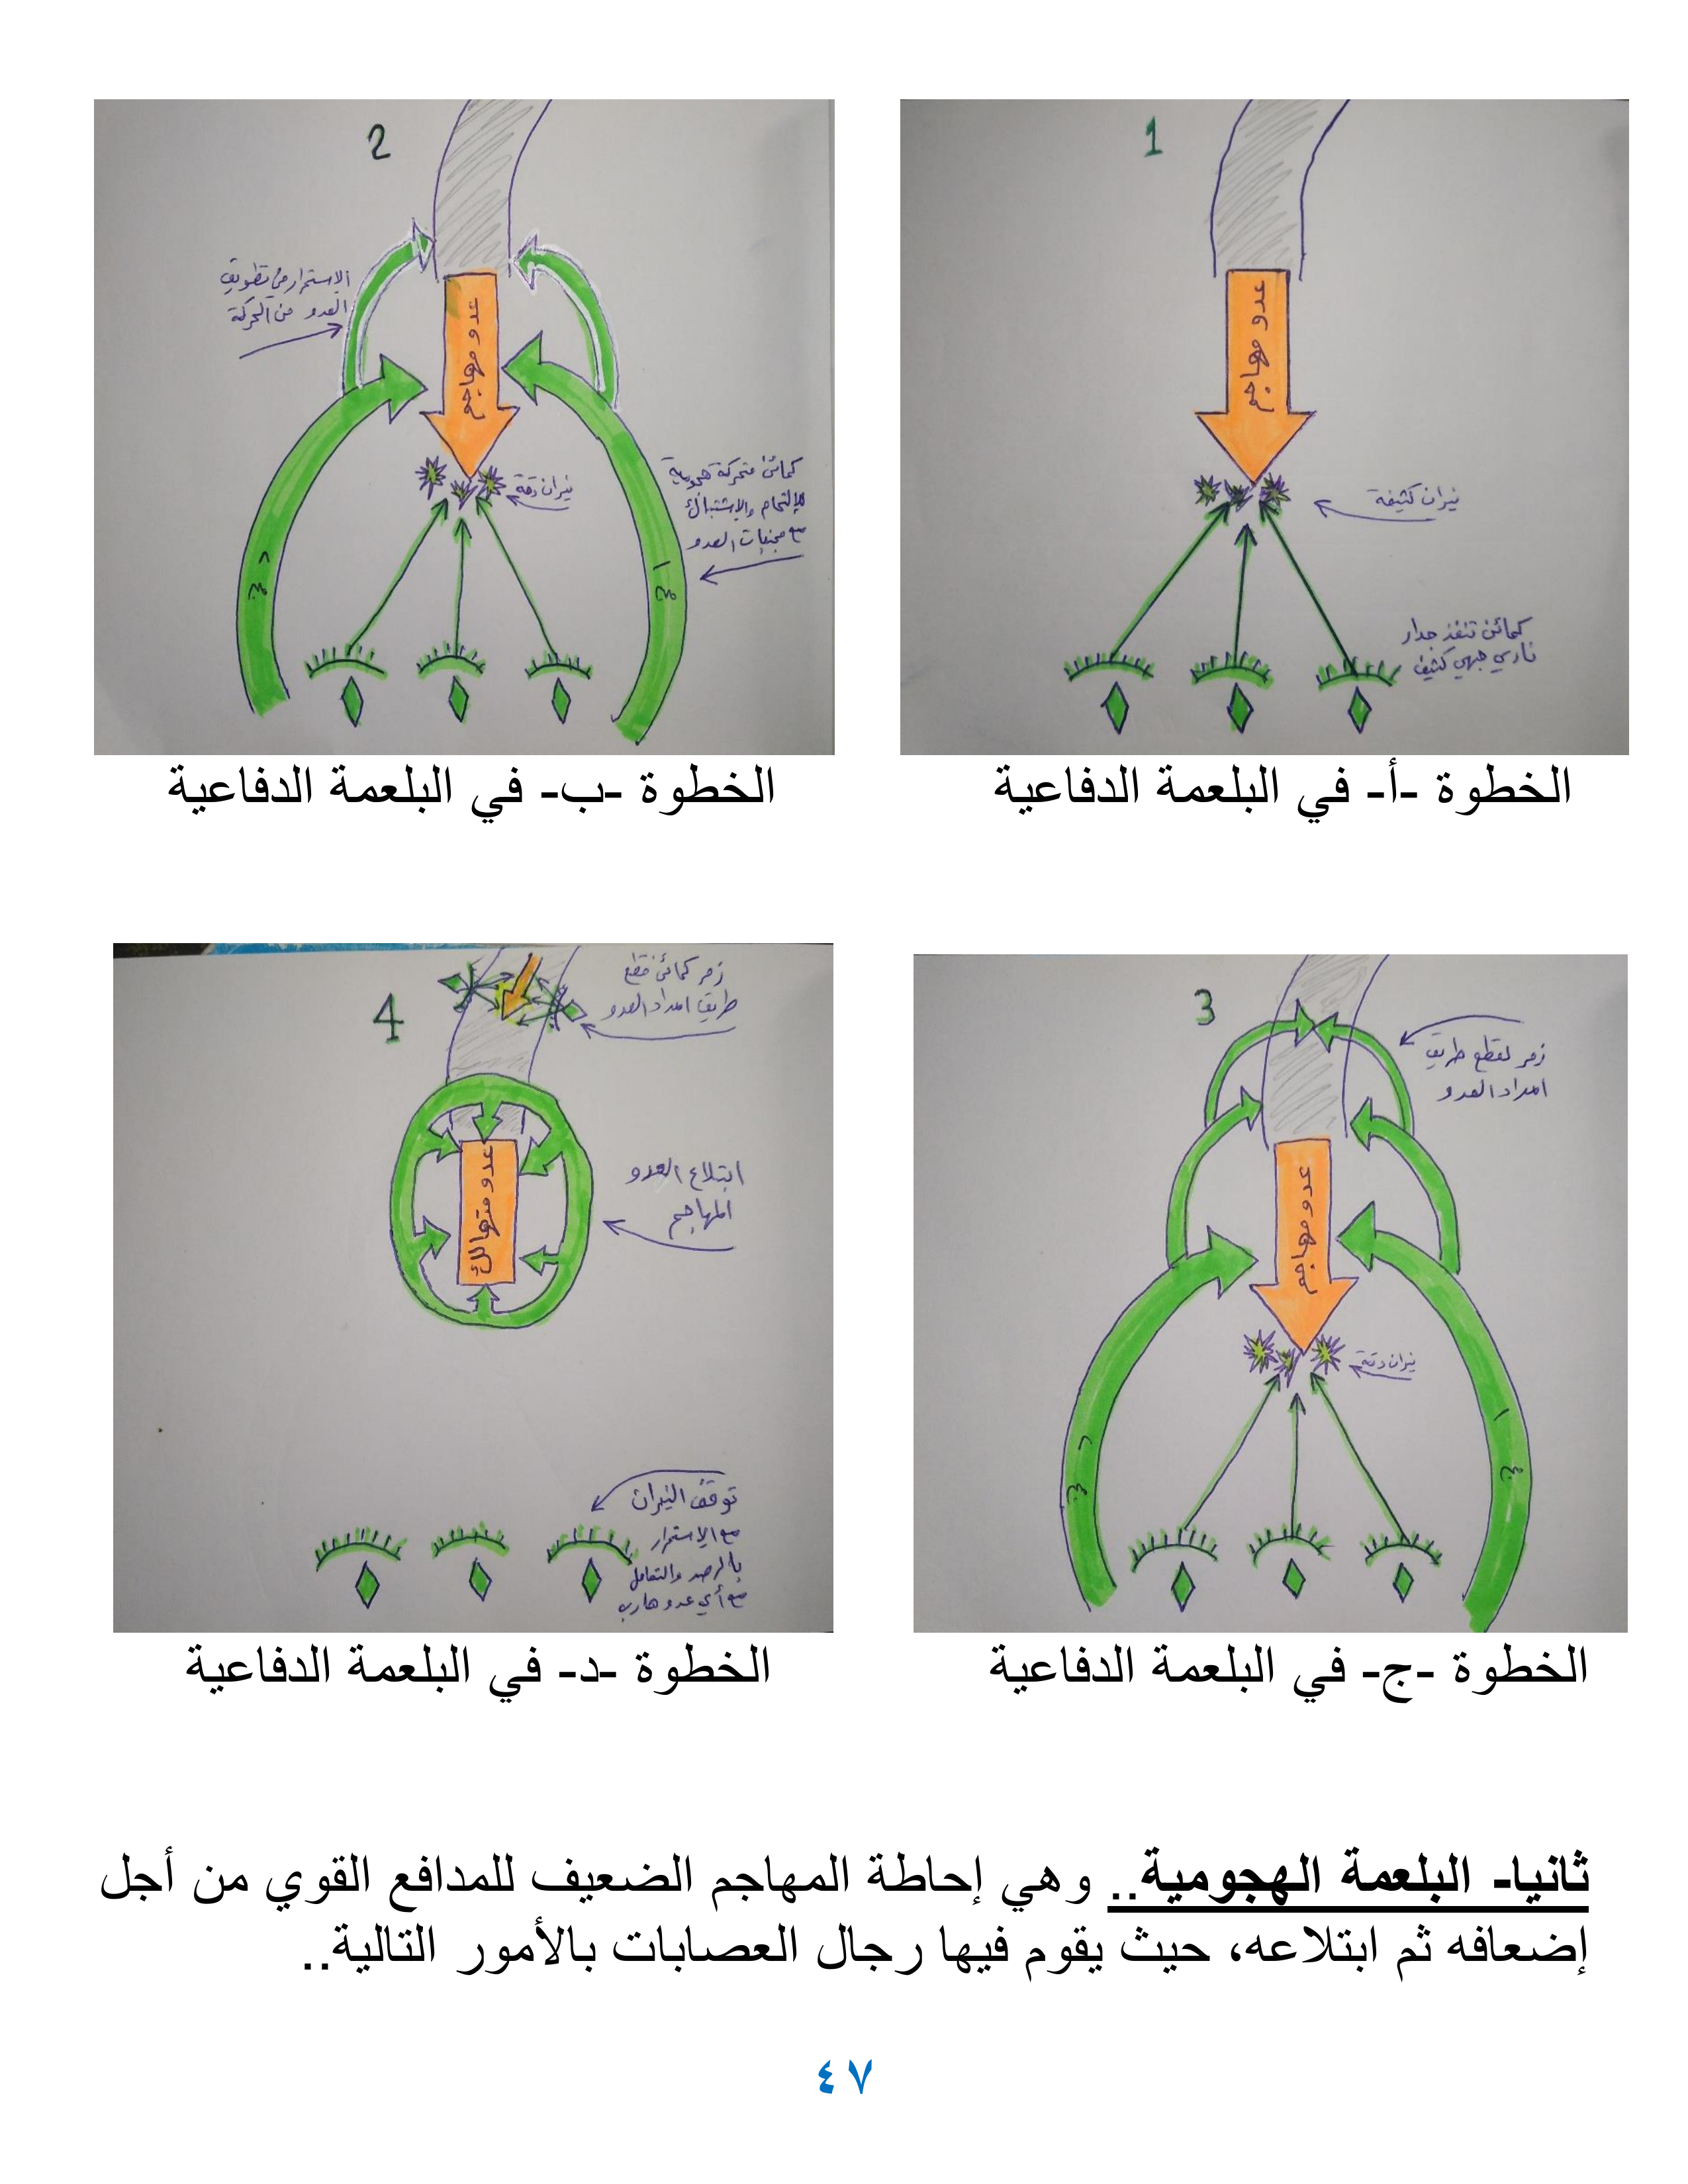 1
عدو مهاجم
نيران كثيفة
كمائن تنفذ جدار
ناري جبهي كثيف
الخطوة -أ- في البلعمة الدفاعية
2
الاستمرار في تطويق
العدو من الحركة
عدو مهاجم
نيران دقة
كمائن متحركة هجومية
للالتحام والاشتباك
مع مجنبات العدو
الخطوة -ب- في البلعمة الدفاعية
3
زمر لقطع طريق
امداد العدو
عدو مهاجم
نيران دقة
الخطوة -ج- في البلعمة الدفاعية
4
زمر كمائن قطع
طريق امداد العدو
عدو متهالك
ابتلاع العدو
المهاجم
توقف النيران
مع الاستمرار
بالرصد والتعامل
مع أي عدو هارب
الخطوة -د- في البلعمة الدفاعية
ثانيا- البلعمة الهجومية.. وهي إحاطة المهاجم الضعيف للمدافع القوي من أجل
إضعافه ثم ابتلاعه، حيث يقوم فيها رجال العصابات بالأمور التالية..
٤٧